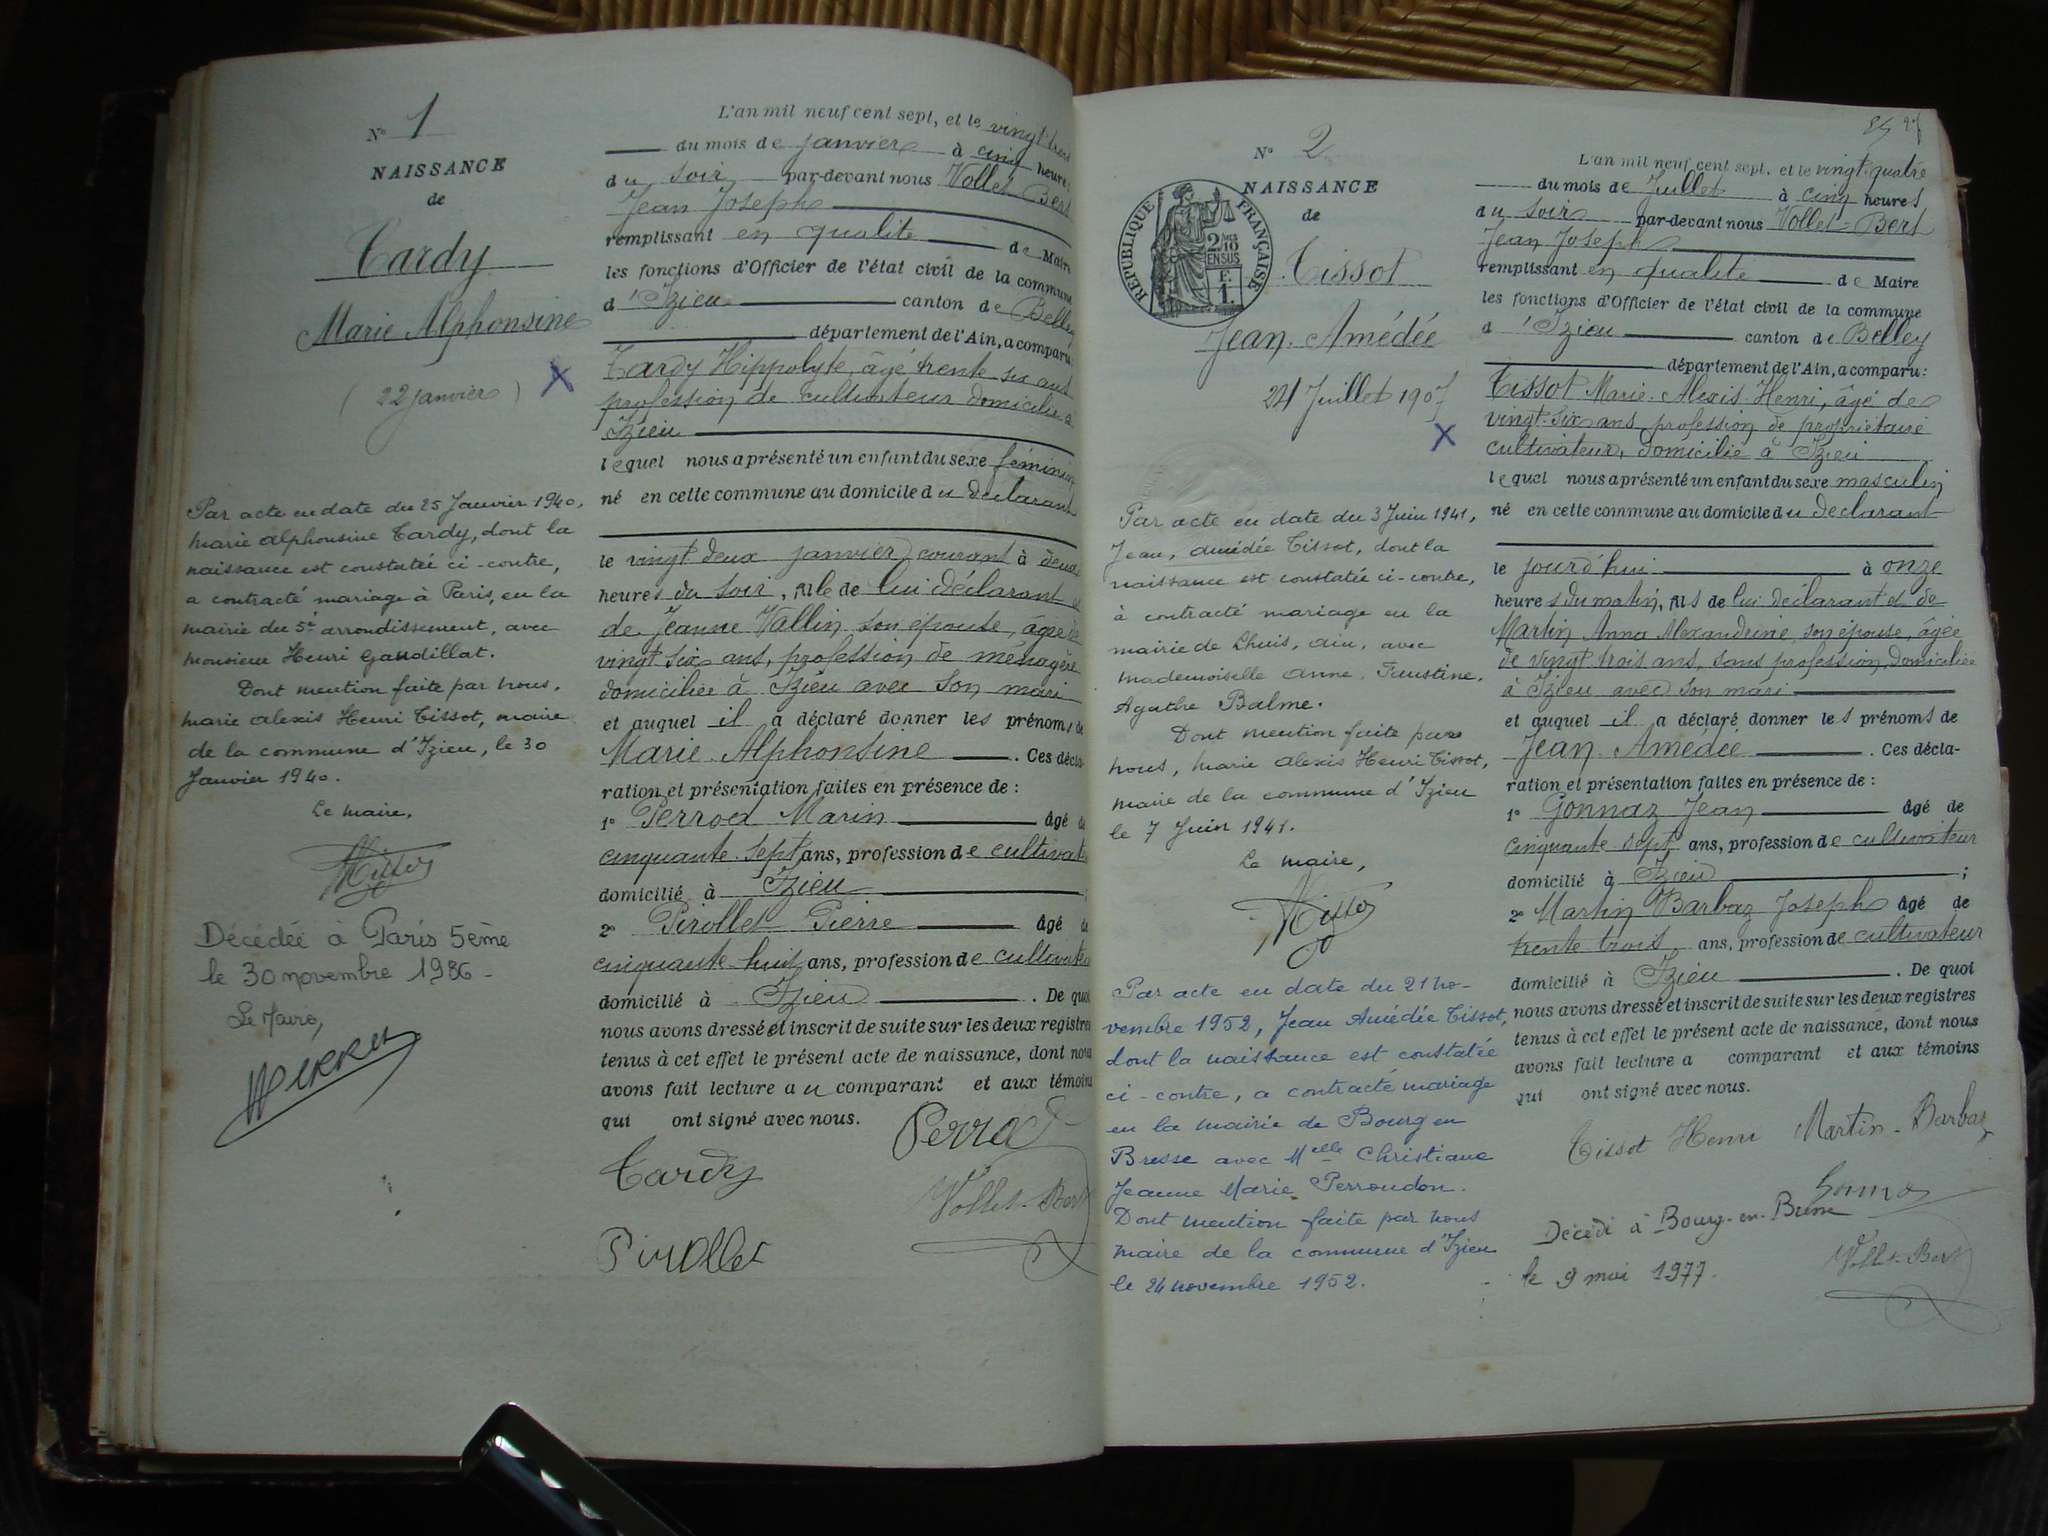 N° 1
NAISSANCE
de
Tardy
Marie Alphonsine
(22 janvier)
X
Par acte en date du 25 Janvier 1940,
marie alphonsine Tardy, dont la
naissance est constatée ci-contre,
a contracté mariage à Paris, en la
mairie du 5è arrondissement, avec
monsieur Henri Gandillat.
Dont mention faite par nous,
marie alexis Henri Tissot, maire
de la commune d'Izieu, le 30
Janvier 1940.
Le maire,
Décédée à Paris 5ème
le 30 novembre 1986 -
Le Maire,
L'an mil neuf cent sept, et le vingt trois
du mois de janvier à cinq heures
du soir par-devant nous Vollet-Bert
Jean Joseph
remplissant en qualité de Maire
les fonctions d'Officier de l'état civil de la commune
d'Izieu canton de Belley
département de l'Ain, a comparu:
Tardy Hippolyte, âgé trente six ans
profession de cultivateur domicilié à
Izieu
lequel nous a présenté un enfant du sexe féminin
né en cette commune au domicile du déclarant
le vingt deux janvier courant à deux
heures du soir, fille de lui déclarant et
de Jeanne Vallin son épouse, âgée de
vingt six ans, profession de ménagère
domiciliée à Izieu avec son mari
et auquel il a déclaré donner les prénoms de
Marie Alphonsine. Ces décla-
ration et présentation faites en présence de :
1° Perrod Marin âgé de
cinquante-sept ans, profession de cultivate
domicilié à Izieu ;
2° Pirollet Pierre âgé de
cinquante-huit ans, profession de cultivate
domicilié à Izieu. De quoi
nous avons dressé et inscrit de suite sur les deux registres
tenus à cet effet le présent acte de naissance, dont nous
avons fait lecture au comparant et aux témoins
qui ont signé avec nous.
Perrod
Tardy
Vollet-Bert
Pirollet
N° 2
NAISSANCE
de
RÉPUBLIQUE FRANÇAISE
2/10
EN SUS
F.
1.
Tissot
Jean Amédée
24 Juillet 1907
X
Par acte en date du 3 Juin 1941,
Jean, amédée Tissot, dont la
naissance est constatée ci-contre,
à contracté mariage en la
mairie de Lhuis, ain, avec
mademoiselle anne, Faustine,
Agathe Balme.
Dont mention faite par
nous, marie alexis Henri Tissot,
maire de la commune d'Izieu
le 7 Juin 1941.
Le maire,
Par acte en date du 21 no-
vembre 1952, Jean Amédée Tissot,
dont la naissance est constatée
ci-contre, a contracté mariage
en la mairie de Bourg en
Bresse avec Melle Christiane
Jeanne Marie Perroudon.
Dont mention faite par nous
maire de la commune d'Izieu
le 24 novembre 1952.
L'an mil neuf cent sept, et le vingt-quatre
du mois de Juillet à cinq heures
du soir par-devant nous Vollet-Bert
Jean Joseph
remplissant en qualité de Maire
les fonctions d'Officier de l'état civil de la commune
d'Izieu canton de Belley
département de l'Ain, a comparu:
Tissot Marie-Alexis-Henri, âgé de
vingt-six ans profession de propriétaire
cultivateur, domicilié à Izieu
lequel nous a présenté un enfant du sexe masculin
né en cette commune au domicile du déclarant
le jourd'hui à onze
heures du matin, fils de lui déclarant et de
Martin Anna Alexandrine son épouse, âgée
de vingt trois ans, sans profession, domiciliée
à Izieu avec son mari
et auquel il a déclaré donner les prénoms de
Jean Amédée. Ces décla-
ration et présentation faites en présence de :
1° Gonnaz Jean âgé de
cinquante sept ans, profession de cultivateur
domicilié à Izieu ;
2° Martin Barbaz Joseph âgé de
trente trois ans, profession de cultivateur
domicilié à Izieu. De quoi
nous avons dressé et inscrit de suite sur les deux registres
tenus à cet effet le présent acte de naissance, dont nous
avons fait lecture a comparant et aux témoins
qui ont signé avec nous.
Tissot Henri Martin-Barbaz
Gonnaz
Décédé à Bourg-en-Bresse
Vollet-Bert
le 9 mai 1977.